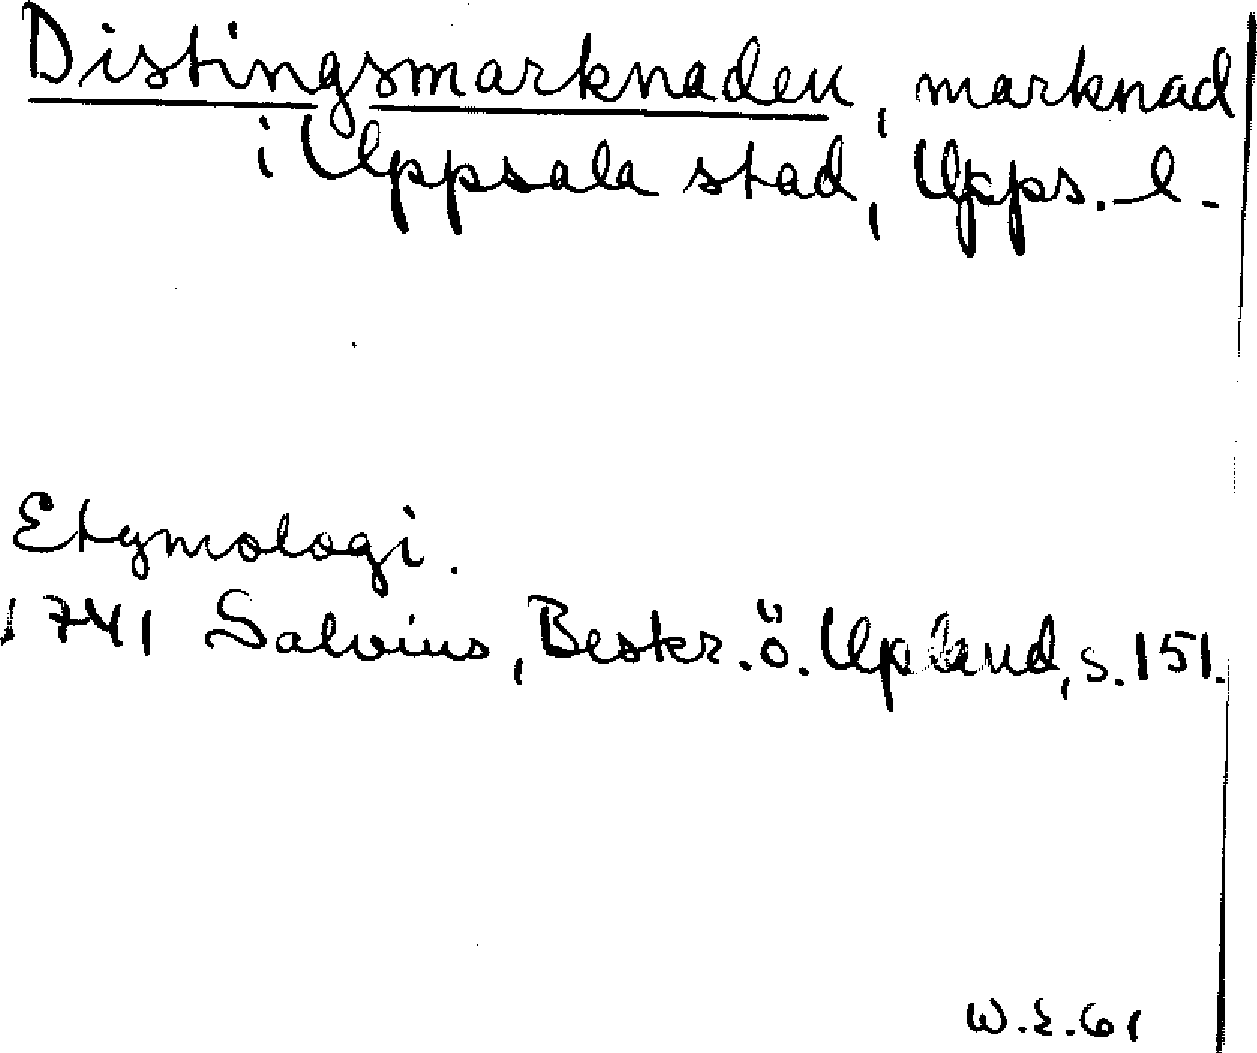 Distingsmarknaden, marknad
i Uppsala stad, Upps. l.
Etymologi.
1741 Salvius, Beskr. ö. Upland, s. 151.
W.E. 61